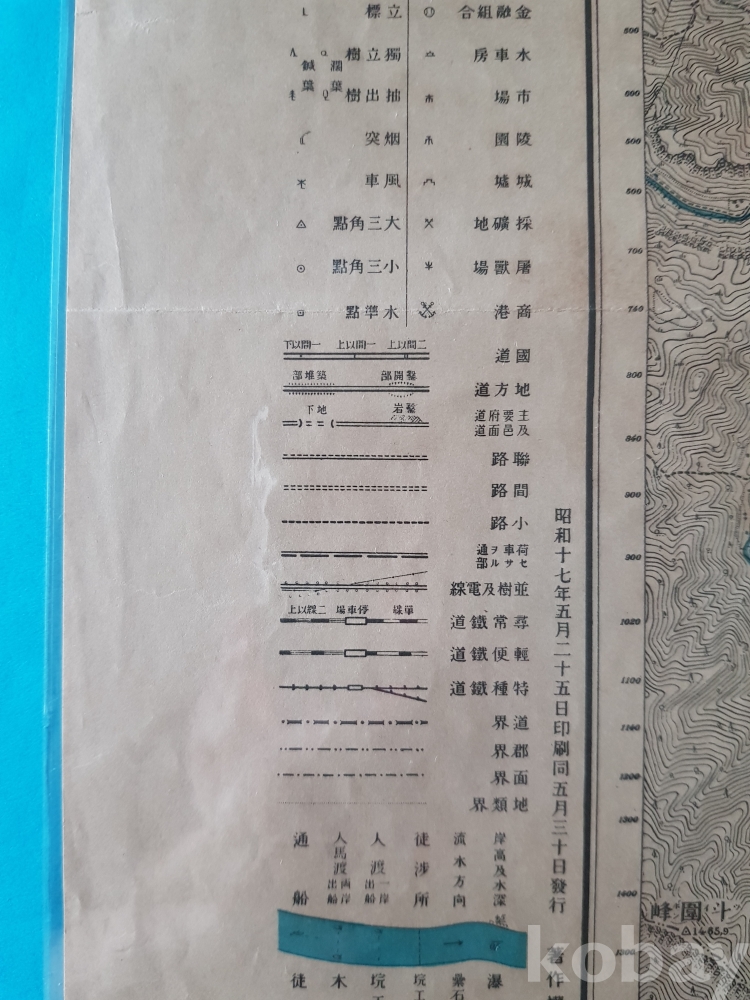 金融組合
水車房
市場
陵園
城墟
採礦地
屠獸場
商港
立標
獨立樹
濶葉
鍼葉
抽出樹
烟突
風車
大三角點
小三角點
水準點
國道
二間以上
一間以上
一間以下
地方道
鑿開部
築堆部
主要府道
及邑面道
鑿岩
地下
聯路
間路
小路
荷車ヲ通
セサル部
並樹及電線
尋常鐵道
單線
停車場
二線以上
輕便鐵道
特種鐵道
道界
郡界
面界
地類界
岸高及水深
流水方向
徒涉所
人渡
一岸
出船
人馬渡
兩岸
出船
通船
昭和十七年五月二十五日印刷同五月三十日發行
著作
斗圍峰
△1465.9
500
600
500
500
700
750
800
850
900
950
1020
1100
1160
1200
1300
1400
瀑
徒
木
kobay